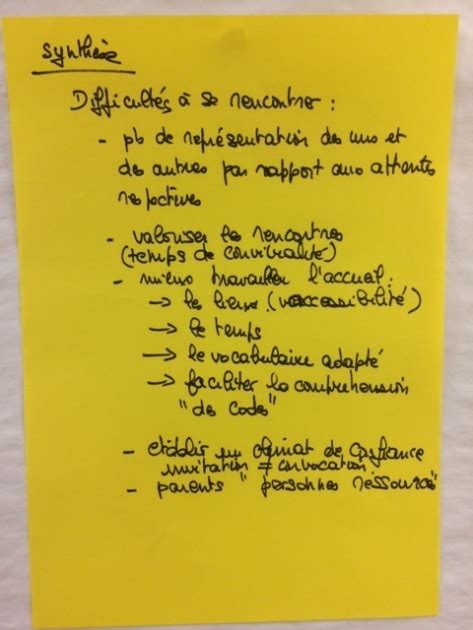 Synthèse
Difficultés à se rencontrer :
- pb de représentation des uns et
des autres par rapport aux attentes
respectives
- valoriser les rencontres
(temps de convivialité)
- mieux travailler l'accueil :
→ les lieux (accessibilité)
→ le temps
→ le vocabulaire adapté
→ faciliter la compréhension
"des codes"
- établir un climat de confiance
invitation ≠ convocation
- parents "personnes ressources"